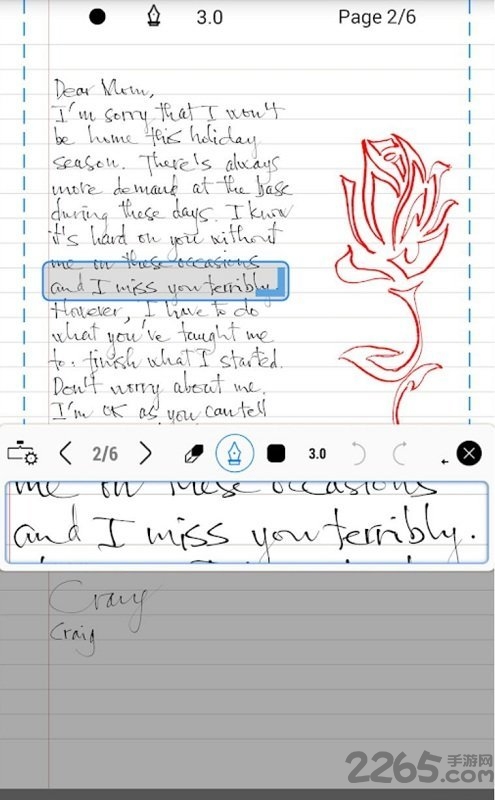 3.0 Page 2/6
Dear Mom,
I'm sorry that I won't
be home this holiday
season. There's always
more demand at the base
during these days. I know
it's hard on you without
me on these occasions
and I miss you terribly.
However, I have to do
what you've taught me
to: finish what I started.
Don't worry about me.
I'm OK as you can tell
2/6 3.0
me on these occasions
and I miss you terribly.
Craig
Craig
2265.com 手游网